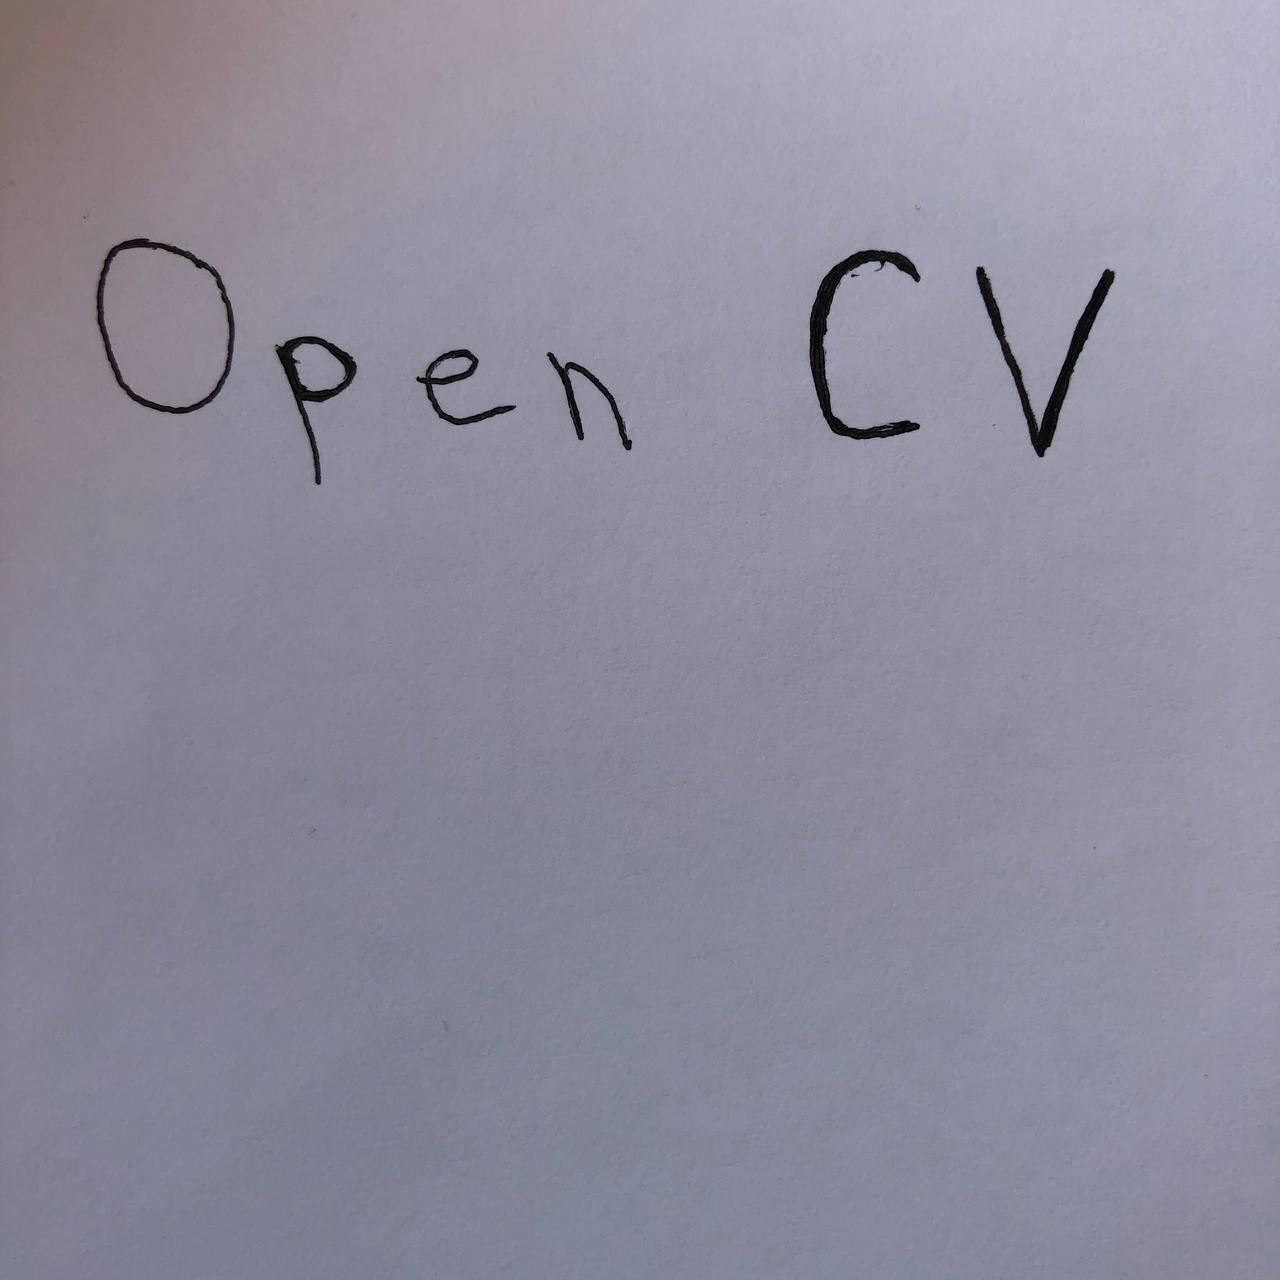 Open CV